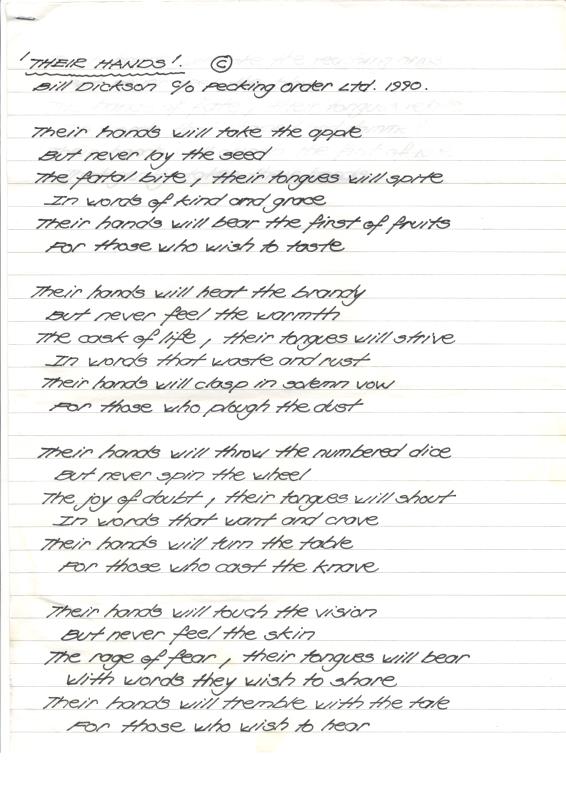 'THEIR HANDS'. ©
Bill Dickson c/o Pecking Order Ltd. 1990.
Their hands will take the apple
But never lay the seed
The fatal bite, their tongues will spite
In words of kind and grace
Their hands will bear the first of fruits
For those who wish to taste
Their hands will heat the brandy
But never feel the warmth
The cask of life, their tongues will strive
In words that waste and rust
Their hands will clasp in solemn vow
For those who plough the dust
Their hands will throw the numbered dice
But never spin the wheel
The joy of doubt, their tongues will shout
In words that want and crave
Their hands will turn the table
For those who cast the knave
Their hands will touch the vision
But never feel the skin
The rage of fear, their tongues will bear
With words they wish to share
Their hands will tremble with the tale
For those who wish to hear